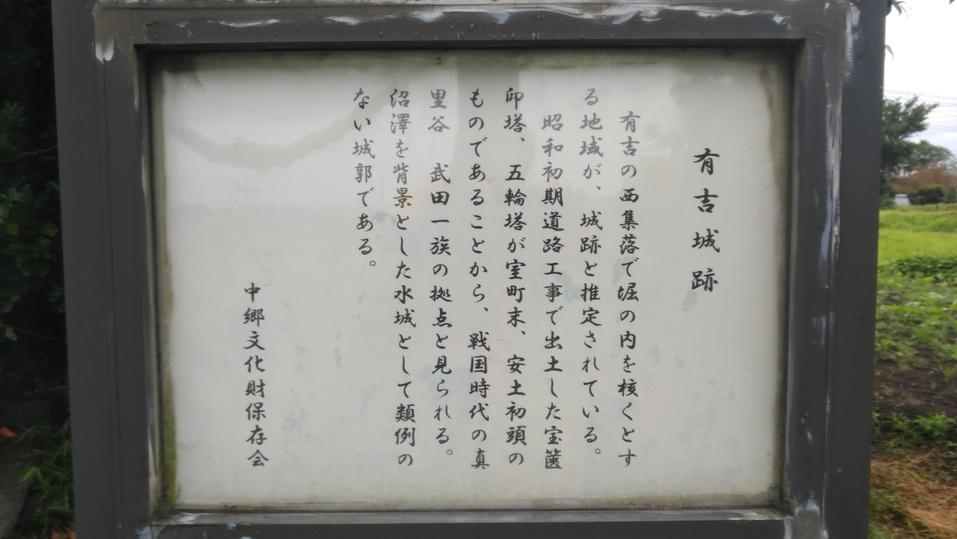 有吉城跡
有吉の西集落で堀の内を核くとす
る地域が、城跡と推定されている。
昭和初期道路工事で出土した宝篋
印塔、五輪塔が室町末、安土初頭の
ものであることから、戦国時代の真
里谷　武田一族の拠点と見られる。
沼澤を背景とした水城として類例の
ない城郭である。
中郷文化財保存会